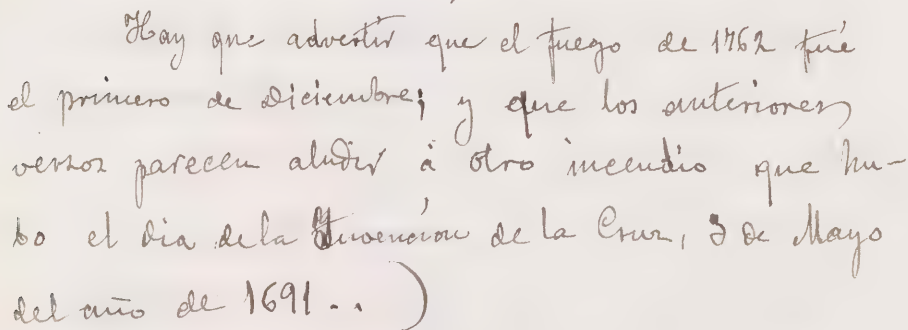 Hay que advertir que el fuego de 1762 fué
el primero de Diciembre; y que los anteriores
versos parecen aludir à otro incendio que hu-
bo el dia de la Invención de la Cruz, 3 de Mayo
del año de 1691 .. )